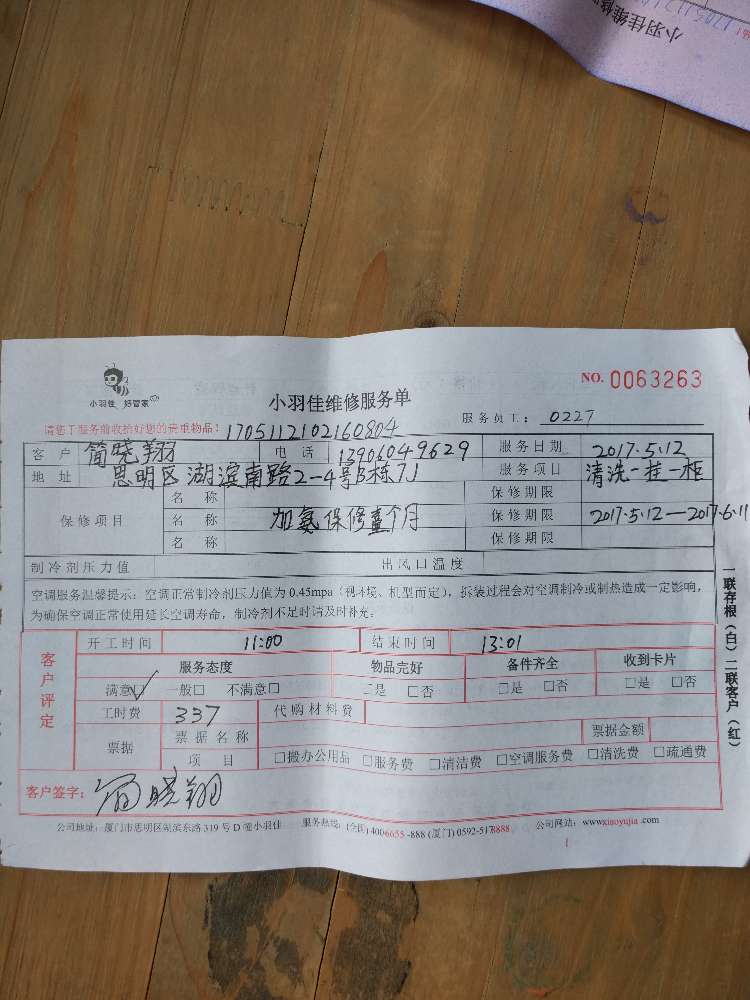 小羽佳维修
小羽佳 好管家
小羽佳维修服务单
NO. 0063263
请您于服务前收拾好您的贵重物品! 1705112102160804
服务员工: 0227
客 户 简晓翔 电 话 13906049629 服务日期 2017.5.12
地 址 思明区湖滨南路2-4号B栋7J 服务项目 清洗一挂一柜
保修项目
名 称 保修期限
名 称 加氨保修壹个月 保修期限 2017.5.12—2017.6.11
名 称 保修期限
制冷剂压力值 出风口温度
空调服务温馨提示: 空调正常制冷剂压力值为 0.45mpa (视环境、机型而定), 拆装过程会对空调制冷或制热造成一定影响,
为确保空调正常使用延长空调寿命, 制冷剂不足时请及时补充。
客户评定
开工时间 11:00 结束时间 13:01
服务态度 物品完好 备件齐全 收到卡片
满意☑ 一般□ 不满意□ □是 □否 □是 □否 □是 □否
工时费 337 代购材料费
票据 票据名称 票据金额
项 目 □搬办公用品 □服务费 □清洁费 □空调服务费 □清洗费 □疏通费
客户签字: 简晓翔
公司地址: 厦门市思明区湖滨东路 319 号 D 幢小羽佳 服务热线: (全国) 4006655-888 (厦门) 0592-5178888 公司网站: www.xiaoyujia.com
一联存根(白)二联客户(红)